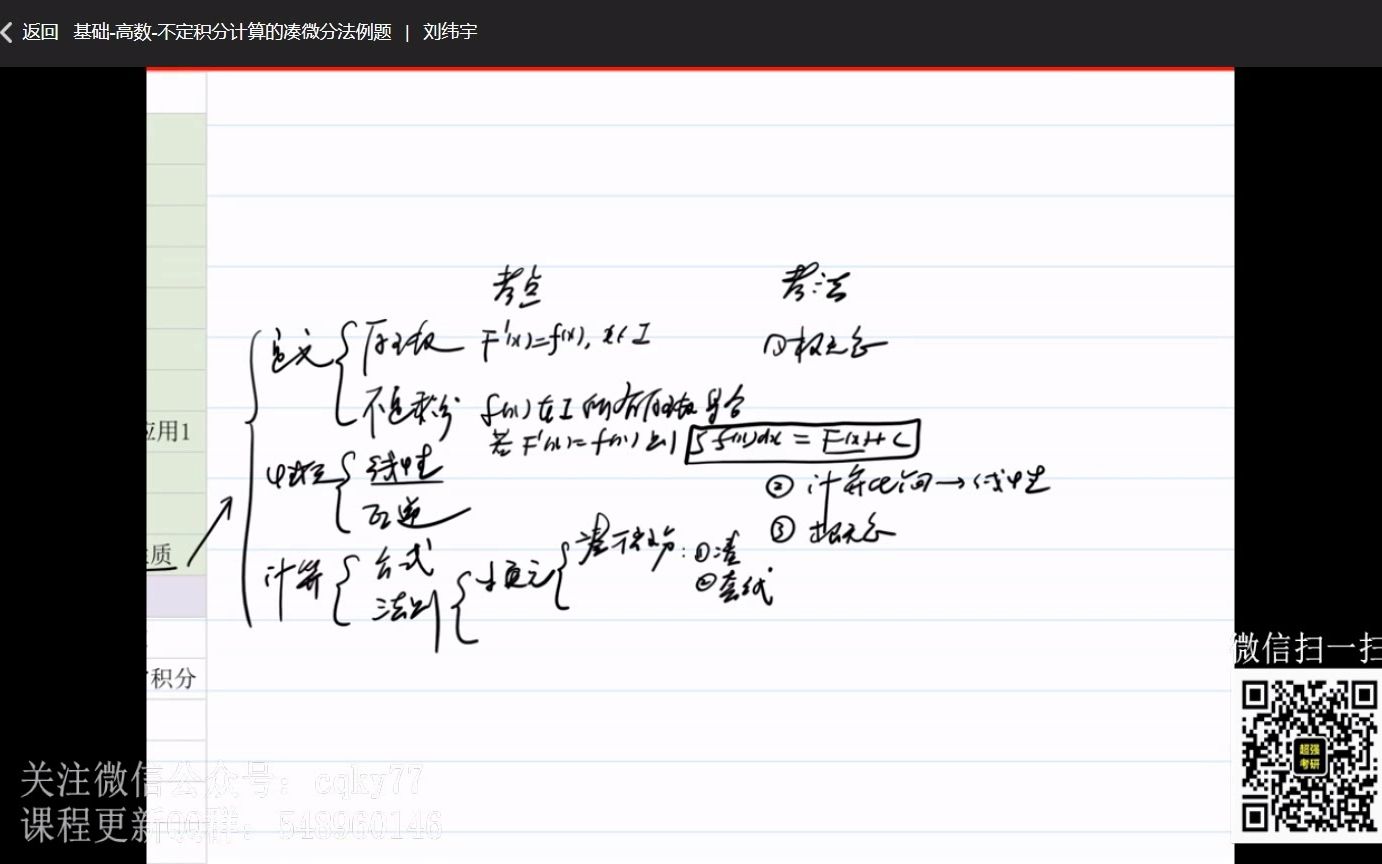 返回 基础-高数-不定积分计算的凑微分法例题 | 刘纬宇
考点 考法
定义 原函数 F'(x)=f(x), x∈I ①概念
不定积分 f(x)在I的所有原函数集合
应用1
若F'(x)=f(x) 则 ∫f(x)dx = F(x)+C
性质 线性 ②计算空间→线性
互逆 ③概念
质
计算 公式 换元 凑微分: ①凑
法则 ②套公式
微信扫一扫
积分
超强
考研
关注微信公众号: cqky77
课程更新QQ群: 548960146